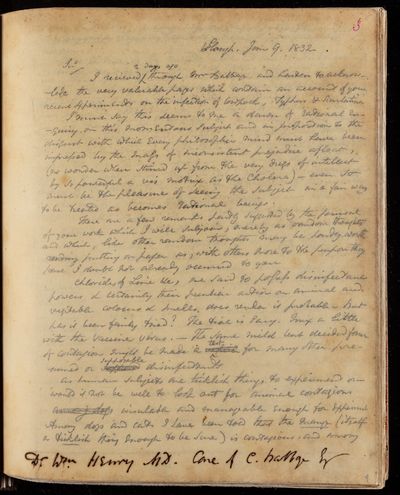 3
Slough. Jan 9. 1832.
Sir
2 days ago
I received / through Mr Babbage and hasten to acknow-
-ledge the very valuable paper which contains an account of your
recent experiments on the infection of Cowpock, Typhus & Scarlatina
I must say this seems to me a dawn of rational en-
-quiry on this momentous subject and in proportion to the
disgust with which every philosophic mind must have been
impressed by the mass of inconsistent prejudice afloat,
(no wonder when stirred up from the very dregs of intellect
by so powerful a vis motrix as the Cholera) - even so
must be the pleasure of seeing the subject in a fair way
to be treated as becomes rational beings.
There are a few remarks suggested by the perusal
of your work which I will subjoin, merely as random thoughts
and which, like other random thoughts may be hardly worth
putting on paper as, with others more to the purpose they
have I doubt not already occurred to you
Chloride of Lime &c, are said to possess disinfectant
powers & certainly their peculiar action on animal and
vegetable colours & smells, does render it probable - But
has it been fairly tried? The trial is easy. Mix a little
with the vaccine virus. - The same mild but decided form
of contagion might be made a test for many other pre-
-sumed or supposable disinfectants
As human subjects are ticklish things to experiment on
would it not be well to look out for animal contagions
inoculable and manageable enough for experiment
Among dogs and cats I have been told that the mange (itself
a ticklish thing enough to be sure) is contagious, and among
Dr Wm Henry M.D. Care of C. Babbage Esq